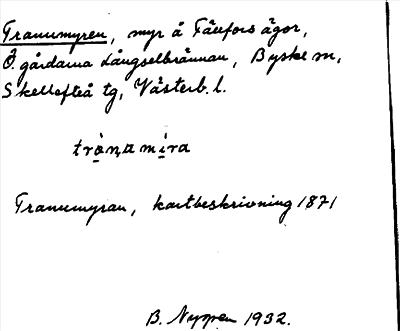 Tranumyren, myr å Fällfors ägor,
Ö. gårdarna Långselbrännan, Byske sn,
Skellefteå tg, Västerb. l.
trò̱ṇa mi̱ra
Tranumyran, kartbeskrivning 1871
B. Nyman 1932.